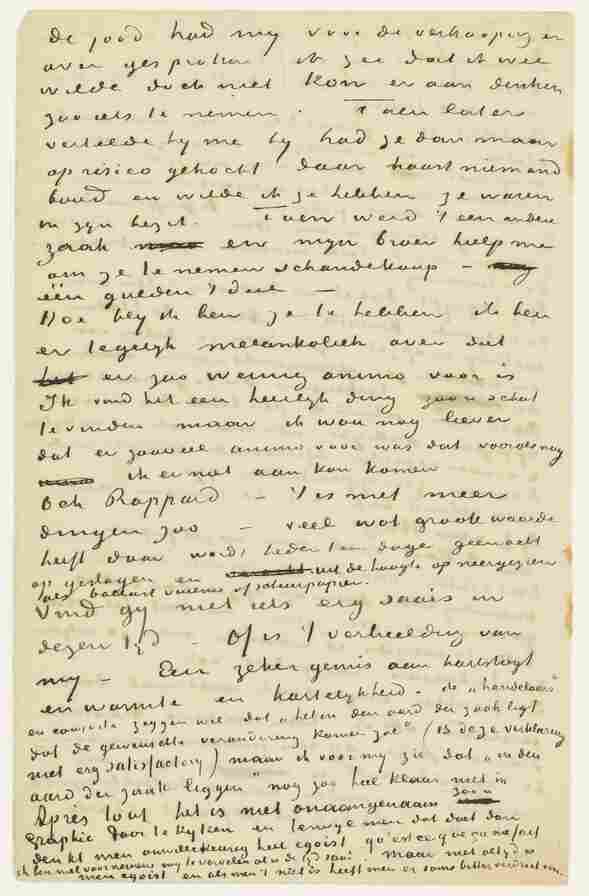 de jood had my voor de verkooping er
over gesproken ik zei dat ik wel
wilde doch niet kon er aan denken
zoo iets te nemen. Toen later
vertelde hy me hy had ze dan maar
op risico gekocht daar haast niemand
bood en wilde ik ze hebben ze waren
in zyn bezit. Toen werd 't een andere
zaak en myn broer hielp me
om ze te nemen schandekoop –
één gulden 't deel –
Hoe bly ik ben ze te hebben ik ben
er tegelyk melankoliek over dat
er zoo weinig animo voor is
Ik vind het een heerlyk ding zoo'n schat
te vinden maar ik wou nog liever
dat er zooveel animo voor was dat vooralsnog
ik er niet aan kon komen
Och Rappard – 't is met meer
dingen zoo – veel wat groote waarde
heeft daar wordt heden ten dage geen acht
op geslagen en uit de hoogte op neergezien
als betrof vuilnis of scheurpapier.
Vind gy niet iets erg saais in
dezen tyd – Of is 't verbeelding van
my – Een zeker gemis aan hartstogt
en warmte en hartelykheid – de „handelaars"
en consorte zeggen wel dat „het in den aard der zaak ligt
dat de gewenschte verandering komen zal" (is deze verklaring
niet erg satisfactory) maar ik voor my zie dat „in den
aard der zaak liggen" nog zoo heel klaar niet in
Après tout het is niet onaangenaam zoo'n
Graphic door te kyken en terwyl men dat dat doet
denkt men onwillekeurig heel egoist, qu'est ce que ça me fait
ik ben niet voornemens my te vervelen al is de tyd saai. maar niet altyd is
men egoist en als men 't niet is heeft men er soms bitter verdriet van.